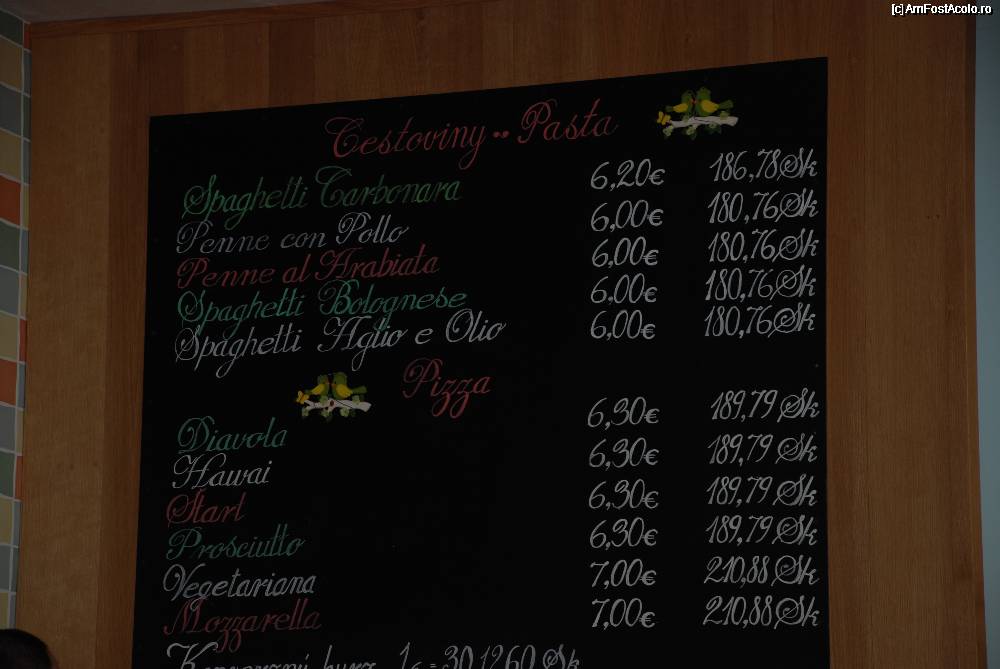 [c]AmFostAcolo.ro
Cestoviny .. Pasta
Spaghetti Carbonara 6,20€ 186,78 Sk
Penne con Pollo 6,00€ 180,76 Sk
Penne al Arabiata 6,00€ 180,76 Sk
Spaghetti Bolognese 6,00€ 180,76 Sk
Spaghetti Aglio e Olio 6,00€ 180,76 Sk
Pizza
Diavola 6,30€ 189,79 Sk
Hawai 6,30€ 189,79 Sk
Start 6,30€ 189,79 Sk
Prosciutto 6,30€ 189,79 Sk
Vegetariana 7,00€ 210,88 Sk
Mozzarella 7,00€ 210,88 Sk
kurz 1€ = 30,1260 Sk